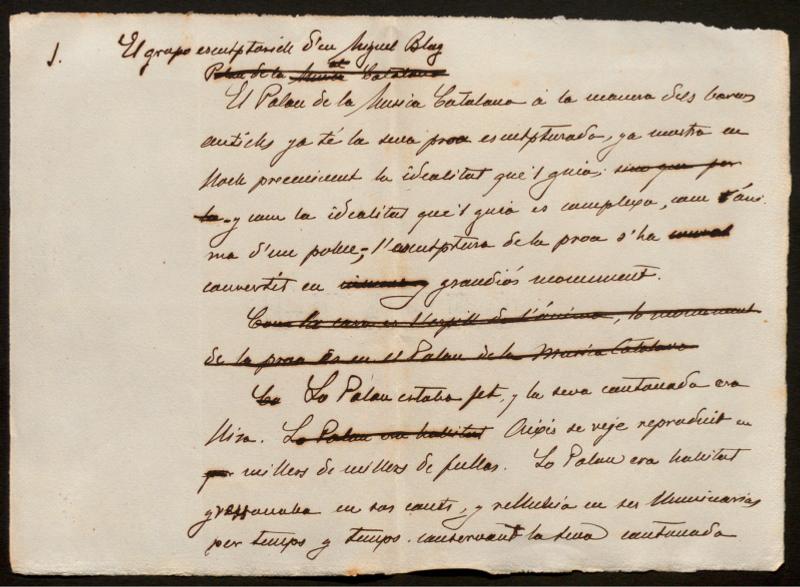 1. El grupo escultorich d'en Miquel Blay
Palau de la Musica Catalana
El Palau de la Musica Catalana á la manera dels barcos
antichs ya té la seva proa esculpturada, ya mostra en
lloch preeminent la idealitat que'l guia, sino que per
la y com la idealitat que'l guia es complexa, com l'áni-
ma d'un poble, l'esculptura de la proa s'ha
convertit en grandiós monument.
Com la cara es l'espill de l'ánima, lo monument
de la proa es en el Palau de la Musica Catalana
Lo Palau estaba fet, y la seva cantonada era
llisa. Lo Palau era habitat Aixís se veje reproduit en
per millers de millers de fullas. Lo Palau era habitat
en sos cants, y relluhia en ses lluminarias
per temps y temps conservant la seva cantonada